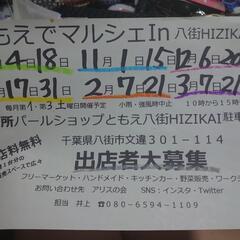 もえでマルシェIn 八街HIZIKAI
4日18日 11月1日15日 12月6日20
17日31日 2月7日21日 3月7日21
毎月第1・第3土曜日開催予定 小雨・強風時中止 10時から15時
所パールショップともえ八街HIZIKAI駐車
千葉県八街市文違301-114
店料無料
出店者大募集
フリーマーケット・ハンドメイド・キッチンカー・野菜販売・ワーク
お問い合わせ先 アリスの会 SNS：インスタ・Twitter
担当 井上 ☎080-6594-1109